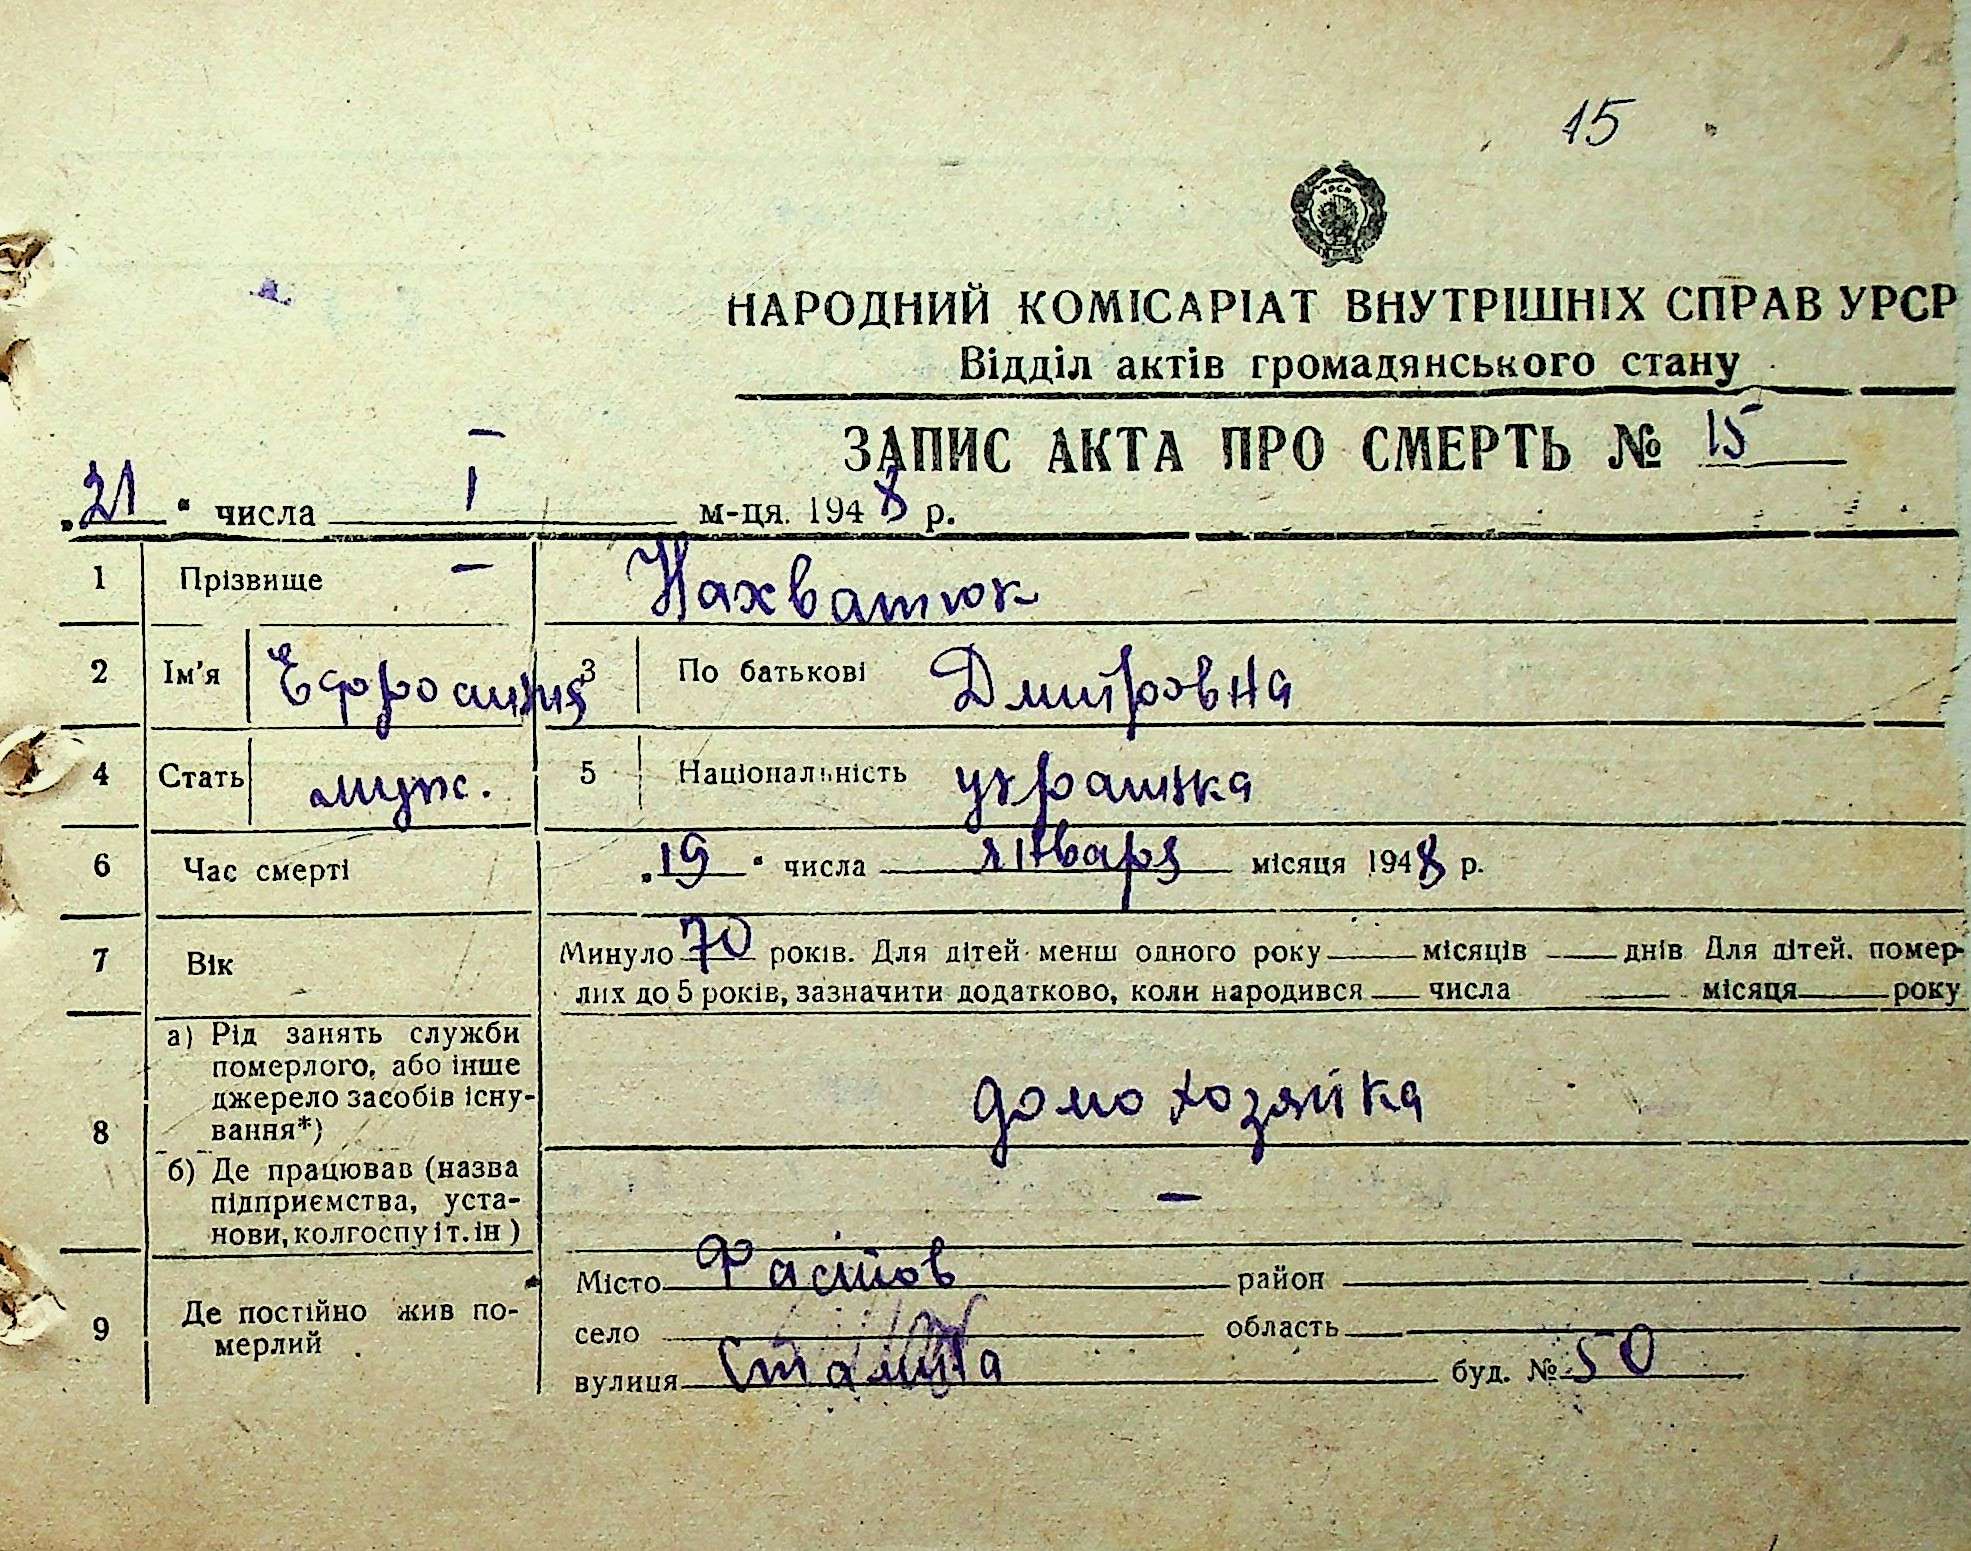 15
УРСР
НАРОДНИЙ КОМІСАРІАТ ВНУТРІШНІХ СПРАВ УРСР
Відділ актів громадянського стану
ЗАПИС АКТА ПРО СМЕРТЬ № 15
„21“ числа I м-ця 1948 р.
1 Прізвище — Нахватюк
2 Ім'я Ефросиния 3 По батькові Дмитровна
4 Стать муж. 5 Національність украинка
6 Час смерті „19“ числа января місяця 1948 р.
7 Вік Минуло 70 років. Для дітей менш одного року — місяців — днів Для дітей, помер-
лих до 5 років, зазначити додатково, коли народився — числа — місяця — року
8 а) Рід занять служби
померлого, або інше
джерело засобів існу-
вання*) домохозяйка
б) Де працював (назва
підприємства, уста-
нови, колгоспу і т. ін) —
9 Де постійно жив по-
мерлий
Місто Фастов район
село область
вулиця Сталина буд. № 50